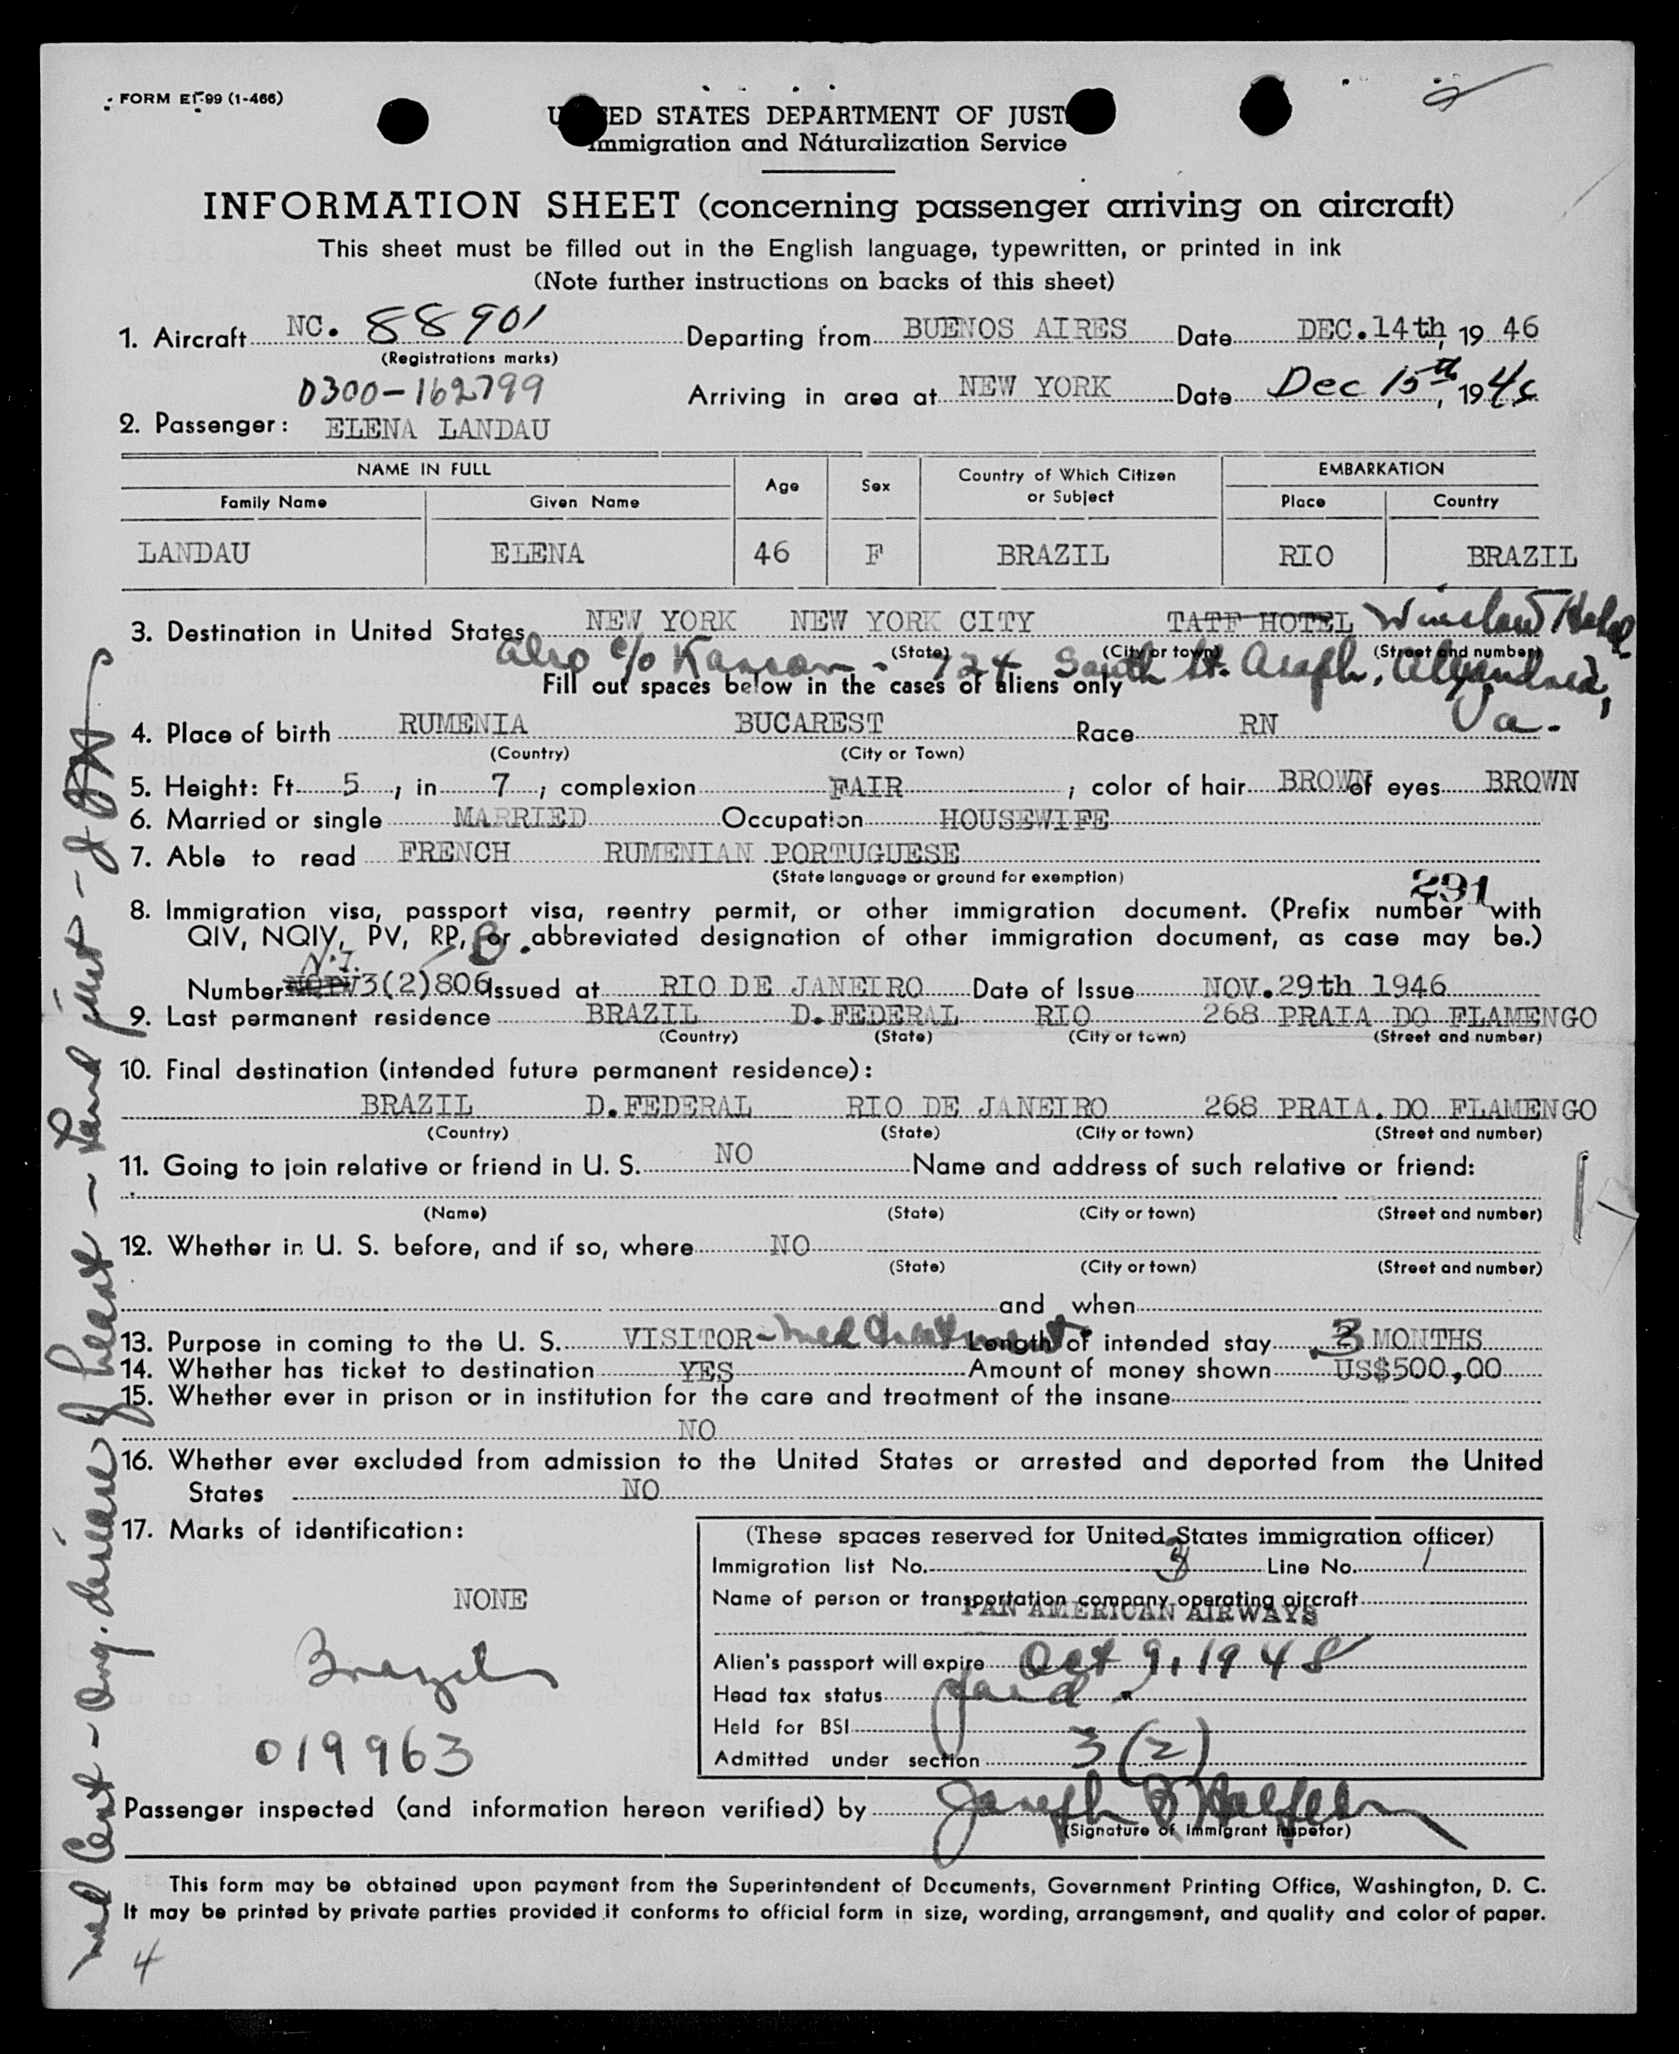 FORM EI-99 (1-466)
UNITED STATES DEPARTMENT OF JUST
Immigration and Naturalization Service
INFORMATION SHEET (concerning passenger arriving on aircraft)
This sheet must be filled out in the English language, typewritten, or printed in ink
(Note further instructions on backs of this sheet)
1. Aircraft NC. 88901 Departing from BUENOS AIRES Date DEC.14th, 19 46
(Registrations marks)
0300-162799 Arriving in area at NEW YORK Date Dec 15th, 19 46
2. Passenger: ELENA LANDAU
NAME IN FULL Age Sex Country of Which Citizen or Subject EMBARKATION
Family Name Given Name Place Country
LANDAU ELENA 46 F BRAZIL RIO BRAZIL
3. Destination in United States NEW YORK NEW YORK CITY TAFT HOTEL Winslow Hotel
(State) (City or town) (Street and number)
also c/o Kanson - 724 South St. Asaph, Alexandria, Va.
Fill out spaces below in the cases of aliens only
4. Place of birth RUMENIA BUCAREST Race RN
(Country) (City or Town)
5. Height: Ft. 5, in 7; complexion FAIR; color of hair BROWN of eyes BROWN
6. Married or single MARRIED Occupation HOUSEWIFE
7. Able to read FRENCH RUMENIAN PORTUGUESE
(State language or ground for exemption)
291
8. Immigration visa, passport visa, reentry permit, or other immigration document. (Prefix number with
QIV, NQIV, PV, RP, or abbreviated designation of other immigration document, as case may be.)
B.
N.I.
Number NQIV 3(2)806 Issued at RIO DE JANEIRO Date of Issue NOV.29th 1946
9. Last permanent residence BRAZIL D.FEDERAL RIO 268 PRAIA DO FLAMENGO
(Country) (State) (City or town) (Street and number)
10. Final destination (intended future permanent residence):
BRAZIL D.FEDERAL RIO DE JANEIRO 268 PRAIA.DO FLAMENGO
(Country) (State) (City or town) (Street and number)
11. Going to join relative or friend in U. S. NO Name and address of such relative or friend:
(Name) (State) (City or town) (Street and number)
12. Whether in U. S. before, and if so, where NO
(State) (City or town) (Street and number)
and when
13. Purpose in coming to the U. S. VISITOR - med treatment Length of intended stay 3 MONTHS
14. Whether has ticket to destination YES Amount of money shown US$500,00
15. Whether ever in prison or in institution for the care and treatment of the insane
NO
16. Whether ever excluded from admission to the United States or arrested and deported from the United
States NO
17. Marks of identification:
NONE
Brazil
019963
(These spaces reserved for United States immigration officer)
Immigration list No. 3 Line No. 1
Name of person or transportation company operating aircraft
PAN AMERICAN AIRWAYS
Alien's passport will expire Oct 9, 1948
Head tax status paid.
Held for BSI
Admitted under section 3(2)
Passenger inspected (and information hereon verified) by Joseph
(Signature of Immigrant Inspetor)
This form may be obtained upon payment from the Superintendent of Documents, Government Printing Office, Washington, D. C.
It may be printed by private parties provided it conforms to official form in size, wording, arrangement, and quality and color of paper.
4
med Cert - Org. disease of heart -